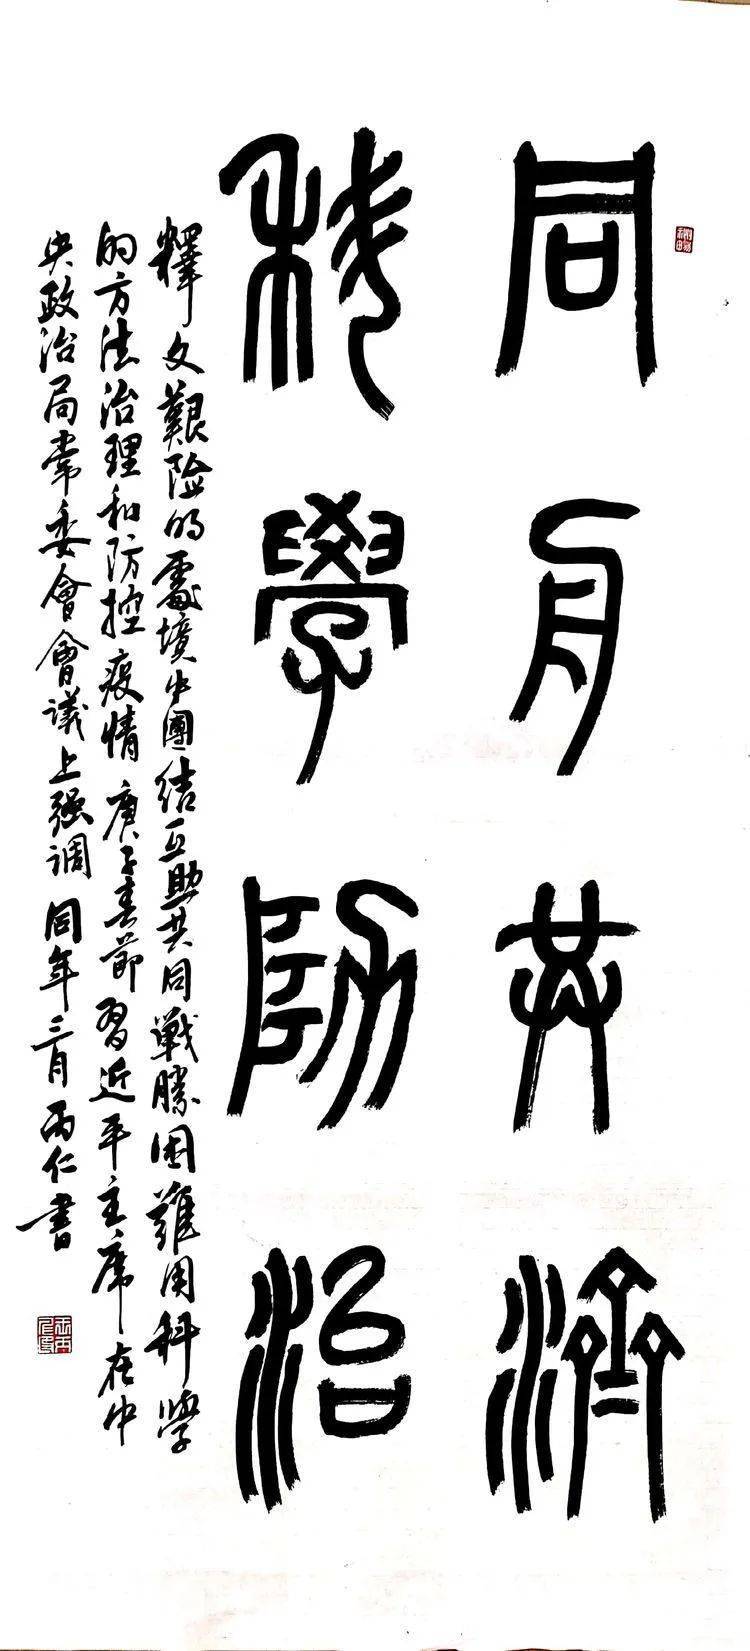 同舟共济
科學防治
釋文艱险的處境中團结互助共同戰勝困難用科學
的方法治理和防控疫情庚子春節習近平主席在中
央政治局常委會會議上强调同年三月丙仁書